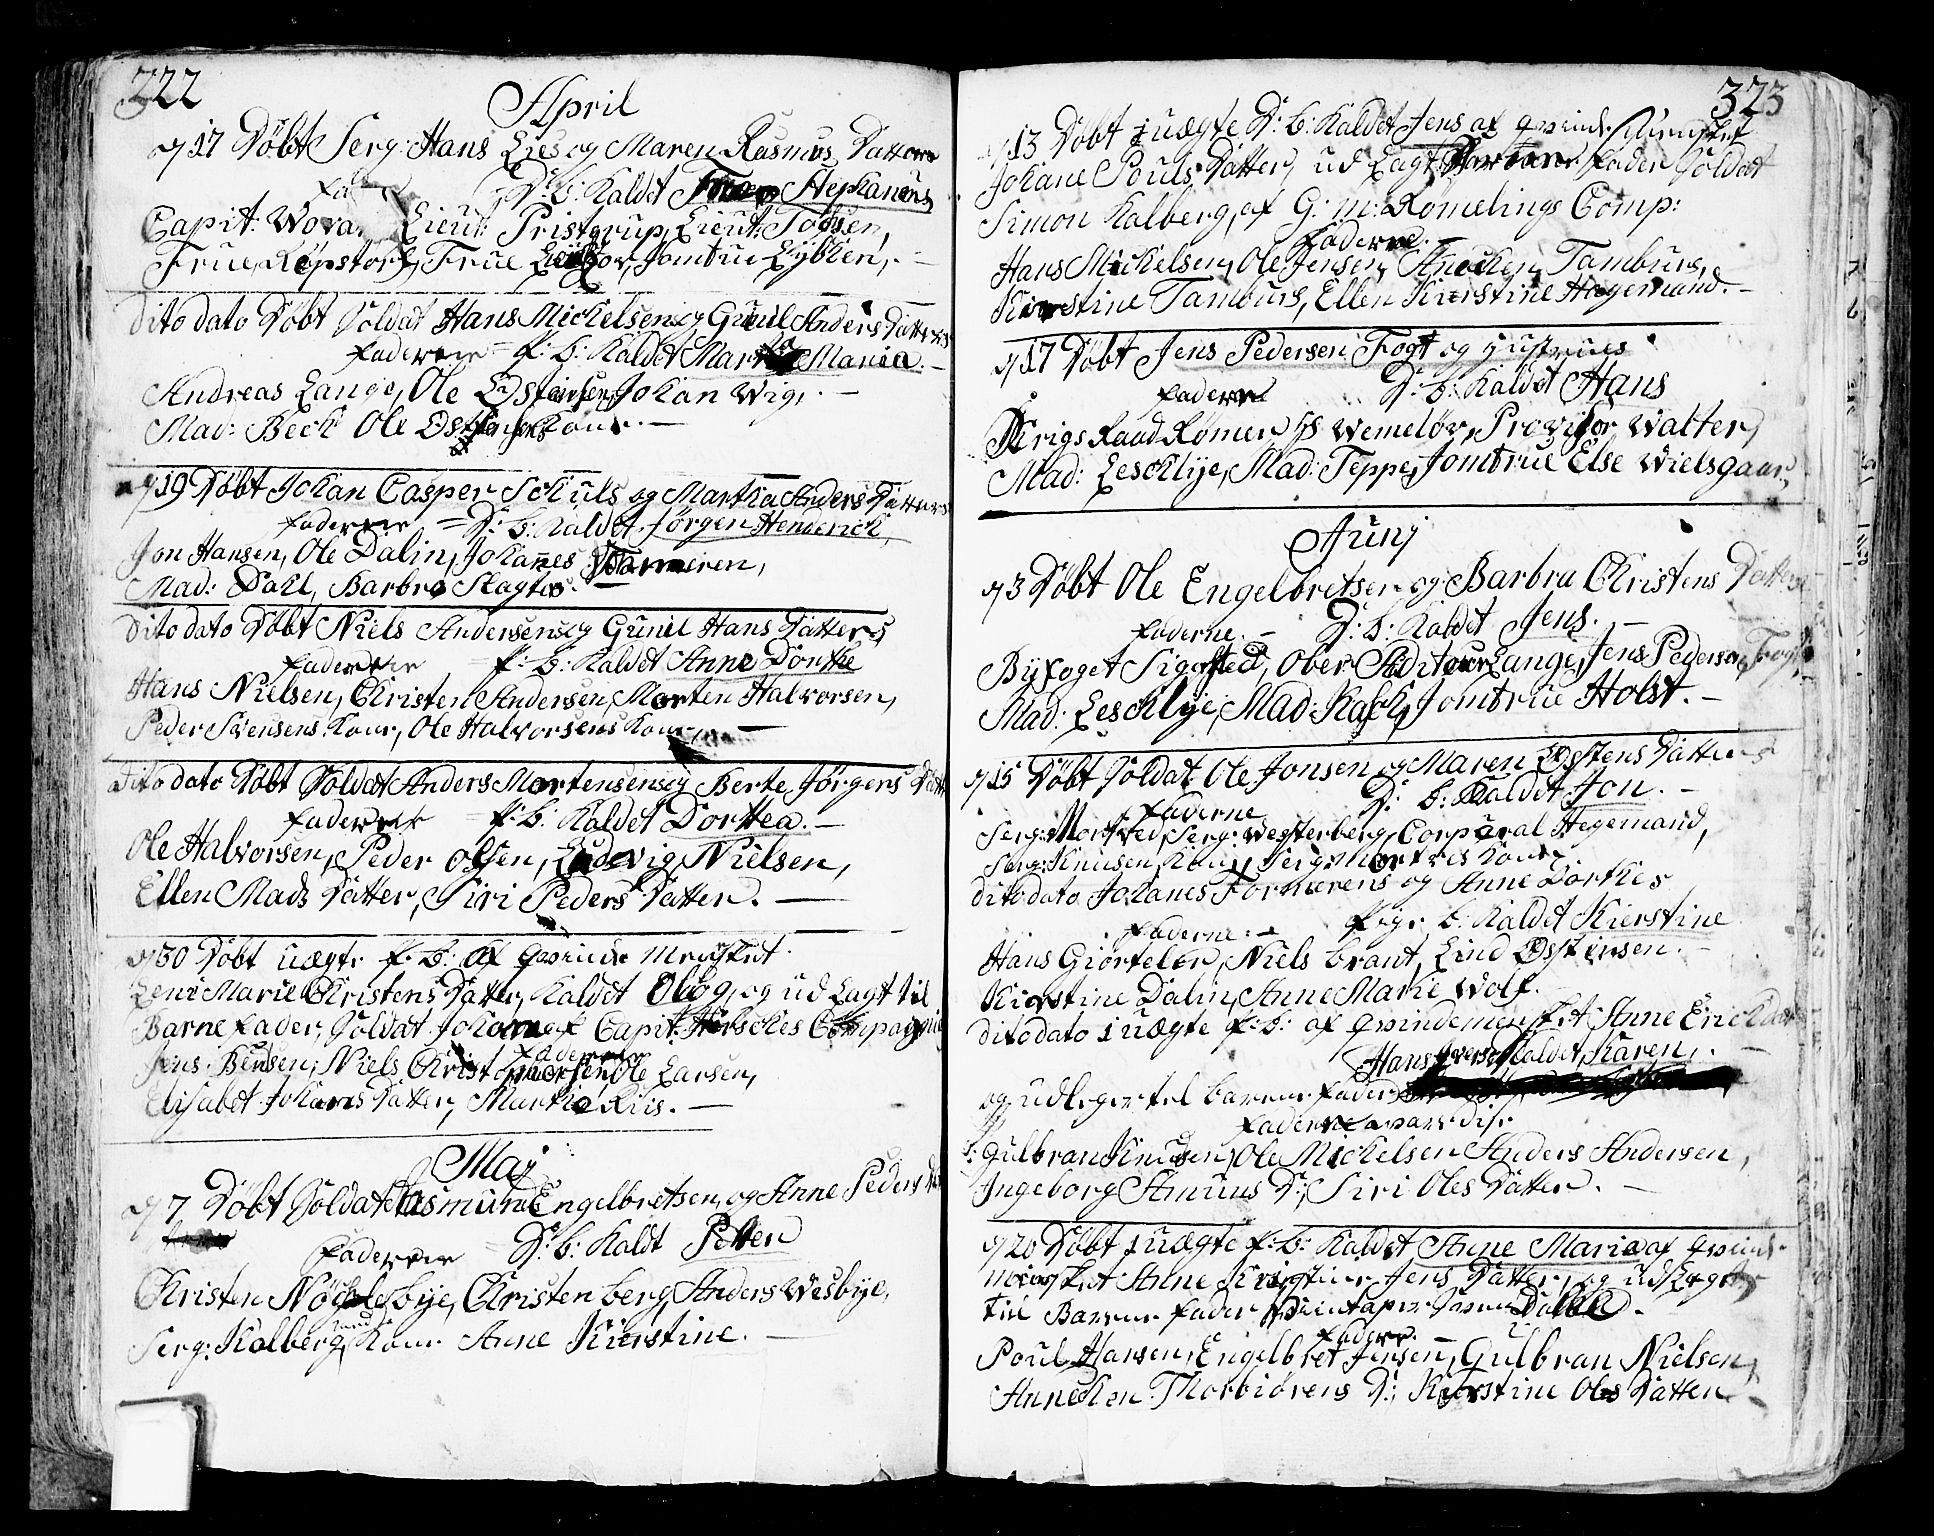 322
April
17 Døbt Serg: Hans Lies og Maren Rasmus Datters
D: b: Kaldet Stephanus
Capit: Lieut: Pristgrup, Lieut: Tøgsen,
Frue Røpstorf, Frue Jomfrue Lybken,
Dito dato Døbt Soldat Hans Mickelsens og Gunil Anders Datters
Faderne = p: b: Kaldet Martha Maria.
Andreas Lange, Ole Østensen, Johan Wig,
Mad: Beck Ole Østensens Kone.
19 Døbt Johan Casper Schuls og Martha Anders Datters
Faderne = D: b: Kaldet Jørgen Henderick,
Jon Hansen, Ole Dalin, Johannes Formeren,
Mad: Dahl, Barbro Slagters.
Dito dato Døbt Niels Andersens og Gunil Hans Datters
Faderne p: b: Kaldet Anne Dorthe
Hans Nielsen, Christen Andersen, Morten Halvorsen,
Peder Svensens Kone, Ole Halvorsens Kone
Dito dato Døbt Soldat Anders Mortensens og Berte Jørgens Datt
Faderne p: b: Kaldet Dorthea.
Ole Halvorsen, Peder Olsen, Ludevig Nielsen,
Ellen Mads Datter, Siri Peders Datter.
30 Døbt uægte p: b: af qvinde mensket
Leni Marie Christens Datter, Kaldet Olög, og ud Lagt til
Barne fader, Soldat Johan af Capit: Herschkes Compagnie
Faderne
Jens Bensen, Niels Christophersen, Ole Larsen,
Elisabet Johans Datter, Marthe Riis.
Maj
7 Døbt Soldat Asmund Engelbretsen, og Anne Peders
Faderne = D: b: Kaldt Petter
Christen Nöchlebye, Christen berg, Anders Wesbye,
Serg: Kalberg med Kone Anne Kierstine.
323
13 Døbt 1 uægte D: b: Kaldet Jens af qvinde mensket
Johane Pouls Datter, ud Lagt Barne fader Soldat
Simon Kalberg, af G: m: Römelings Comp:
Faderne.
Hans Mickelsen, Ole Jensen, Anecken Tamburs,
Kierstine Tamburs, Ellen Kierstine Hagemand.
17 Døbt Jens Pedersen Fogt og Hustrues
Faderne D: b: Kaldet Hans
Krigs Raad Rømer, Hs Wemelöv, Provisor Walter,
Mad: Leschlye, Mad: Teppe, Jomfrue Else Wielsgaar,
Junj
3 Døbt Ole Engelbretsen og Barbra Christens Datters
Faderne. D: b: Kaldet Jens.
Byfoget Sigersted, Ober Auditeur Lange, Jens Pedersen Fogt,
Mad: Leschlye, Mad: Rasch, Jomfrue Holst.
15 Døbt Soldat Ole Jonsen og Maren Østens Datters
Faderne D: b: Kaldet Jon.
Serg: Mortved, Serg: Westerberg, Corporal Hegemand,
Serg: Knusen Kone, Serg: Mortveds Kone
dito dato Johanes Formerens og Anne Dorthes
Faderne. pige b: Kaldet Kierstine
Hans Giörteler, Niels brant, Lind Østensen.
Kierstine Dalin, Anne Marie Wolf.
dito dato 1 uægte p: b: af qvindemensket Anne Erichsdatter
Hans Iversen Kaldet Karen,
og udleger til barne fader
Faderne var disse
Gulbran Knudsen, Ole Mickelsen Anders Andersen,
Ingeborg Amuns D:, Siri Oles Datter.
20 Døbt 1 uægte p: b: Kaldet Anne Maria af qvinde
mensket Anne Kirstine Jens Datter, og udlegt
til Barne fader
Faderne.
Poul Hansen, Engelbret Jensen, Gulbran Nielsen,
Annecken Thorbiörens D:, Kierstine Oles Datter